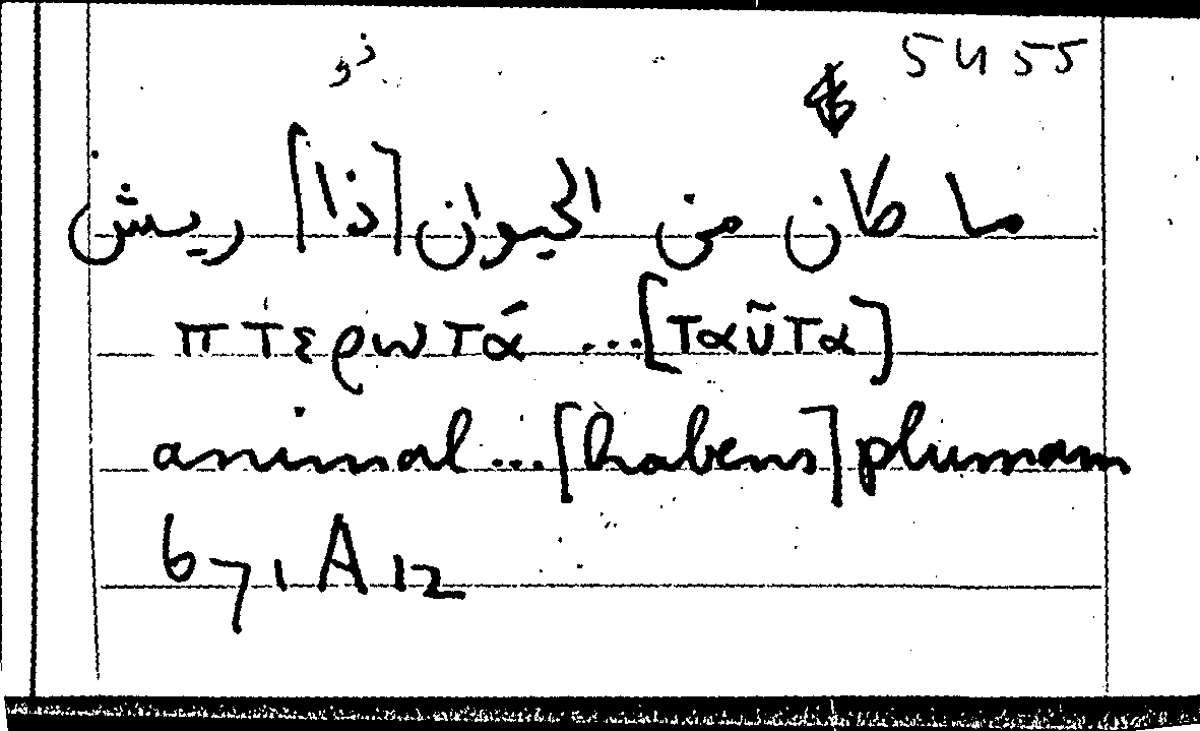 5455
ذو
ما كان من الحيوان [ذا] ريش
πτερωτά ... [ταῦτα]
animal ... [habens] plumam
671 A 12